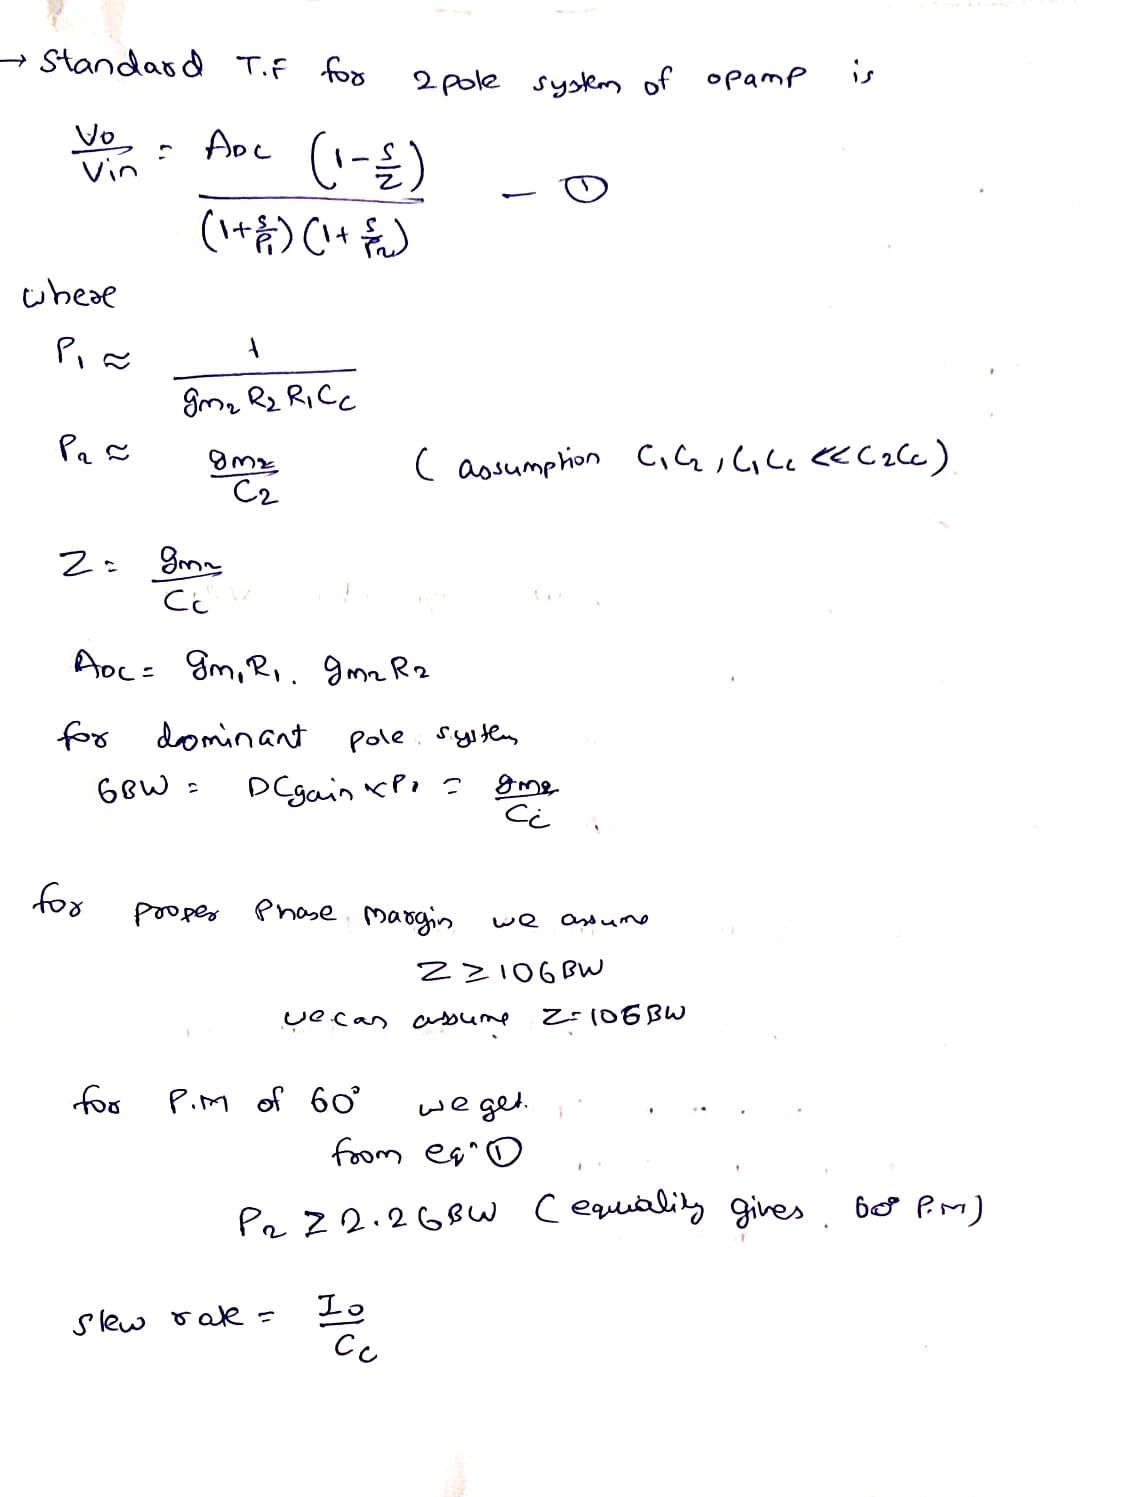 → Standard T.F for 2 pole system of opamp is
Vo/Vin = ADC (1 - s/z) / (1 + s/P1) (1 + s/P2) - ①
where
P1 ≈ 1 / gm2 R2 R1 Cc
P2 ≈ gm2 / C2 ( assumption C1C2, C1Cc << C2Cc)
Z = gm2 / Cc
ADC = gm1R1. gm2R2
for dominant pole system
GBW = DCgain × P1 = gm2 / Cc
for proper Phase Margin we assume
Z ≥ 10GBW
we can assume Z = 10GBW
for P.M of 60° we get.
from eqⁿ ①
P2 ≥ 2.2GBW ( equality gives 60° P.M)
slew rate = Io / Cc